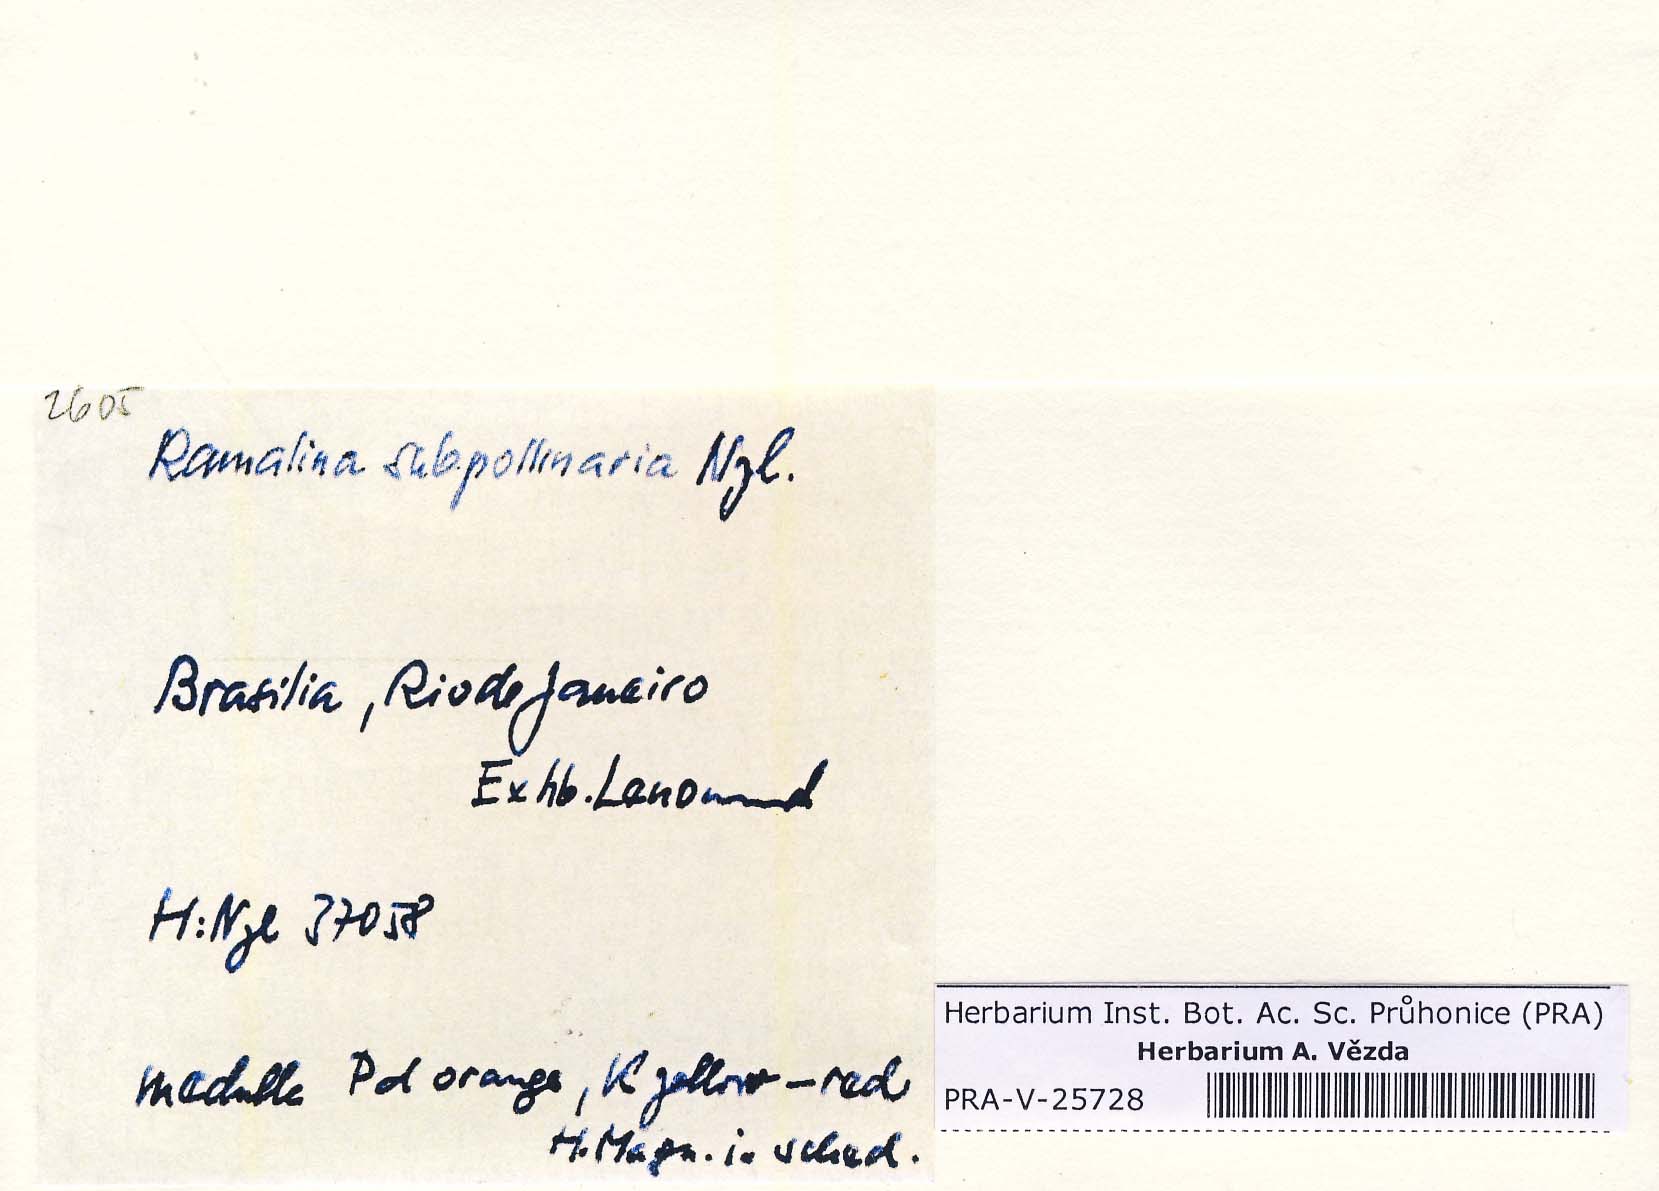 2605
Ramalina subpollinaria Nyl.
Brasilia, Rio de Janeiro
Ex hb.
H: Nyl 37058
medulla Pd orange, K yellow – red
H. Magn. i. sched.
Herbarium Inst. Bot. Ac. Sc. Průhonice (PRA)
Herbarium A. Vězda
PRA-V-25728